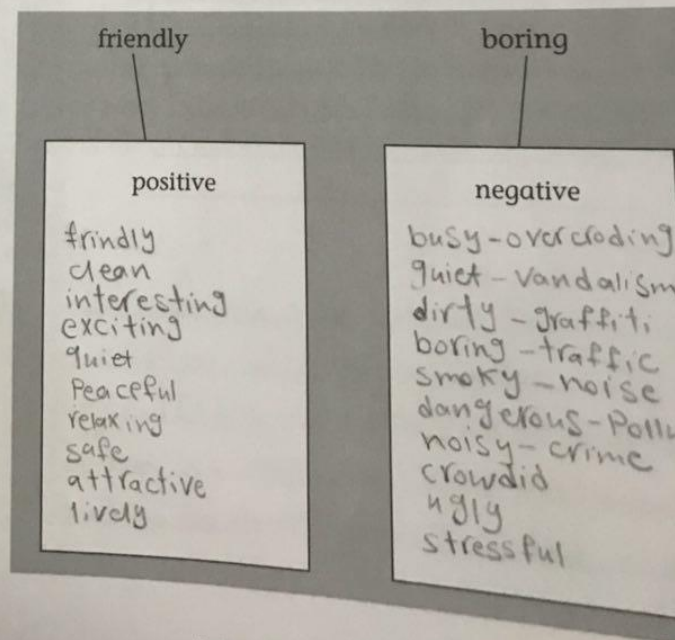 friendly
boring
positive
frindly
clean
interesting
exciting
quiet
Peaceful
relaxing
safe
attractive
lively
negative
busy-overcroding
quiet-vandalism
dirty-graffiti
boring-traffic
smoky-noise
dangerous-Pollu
noisy-crime
crowdid
ugly
stressful